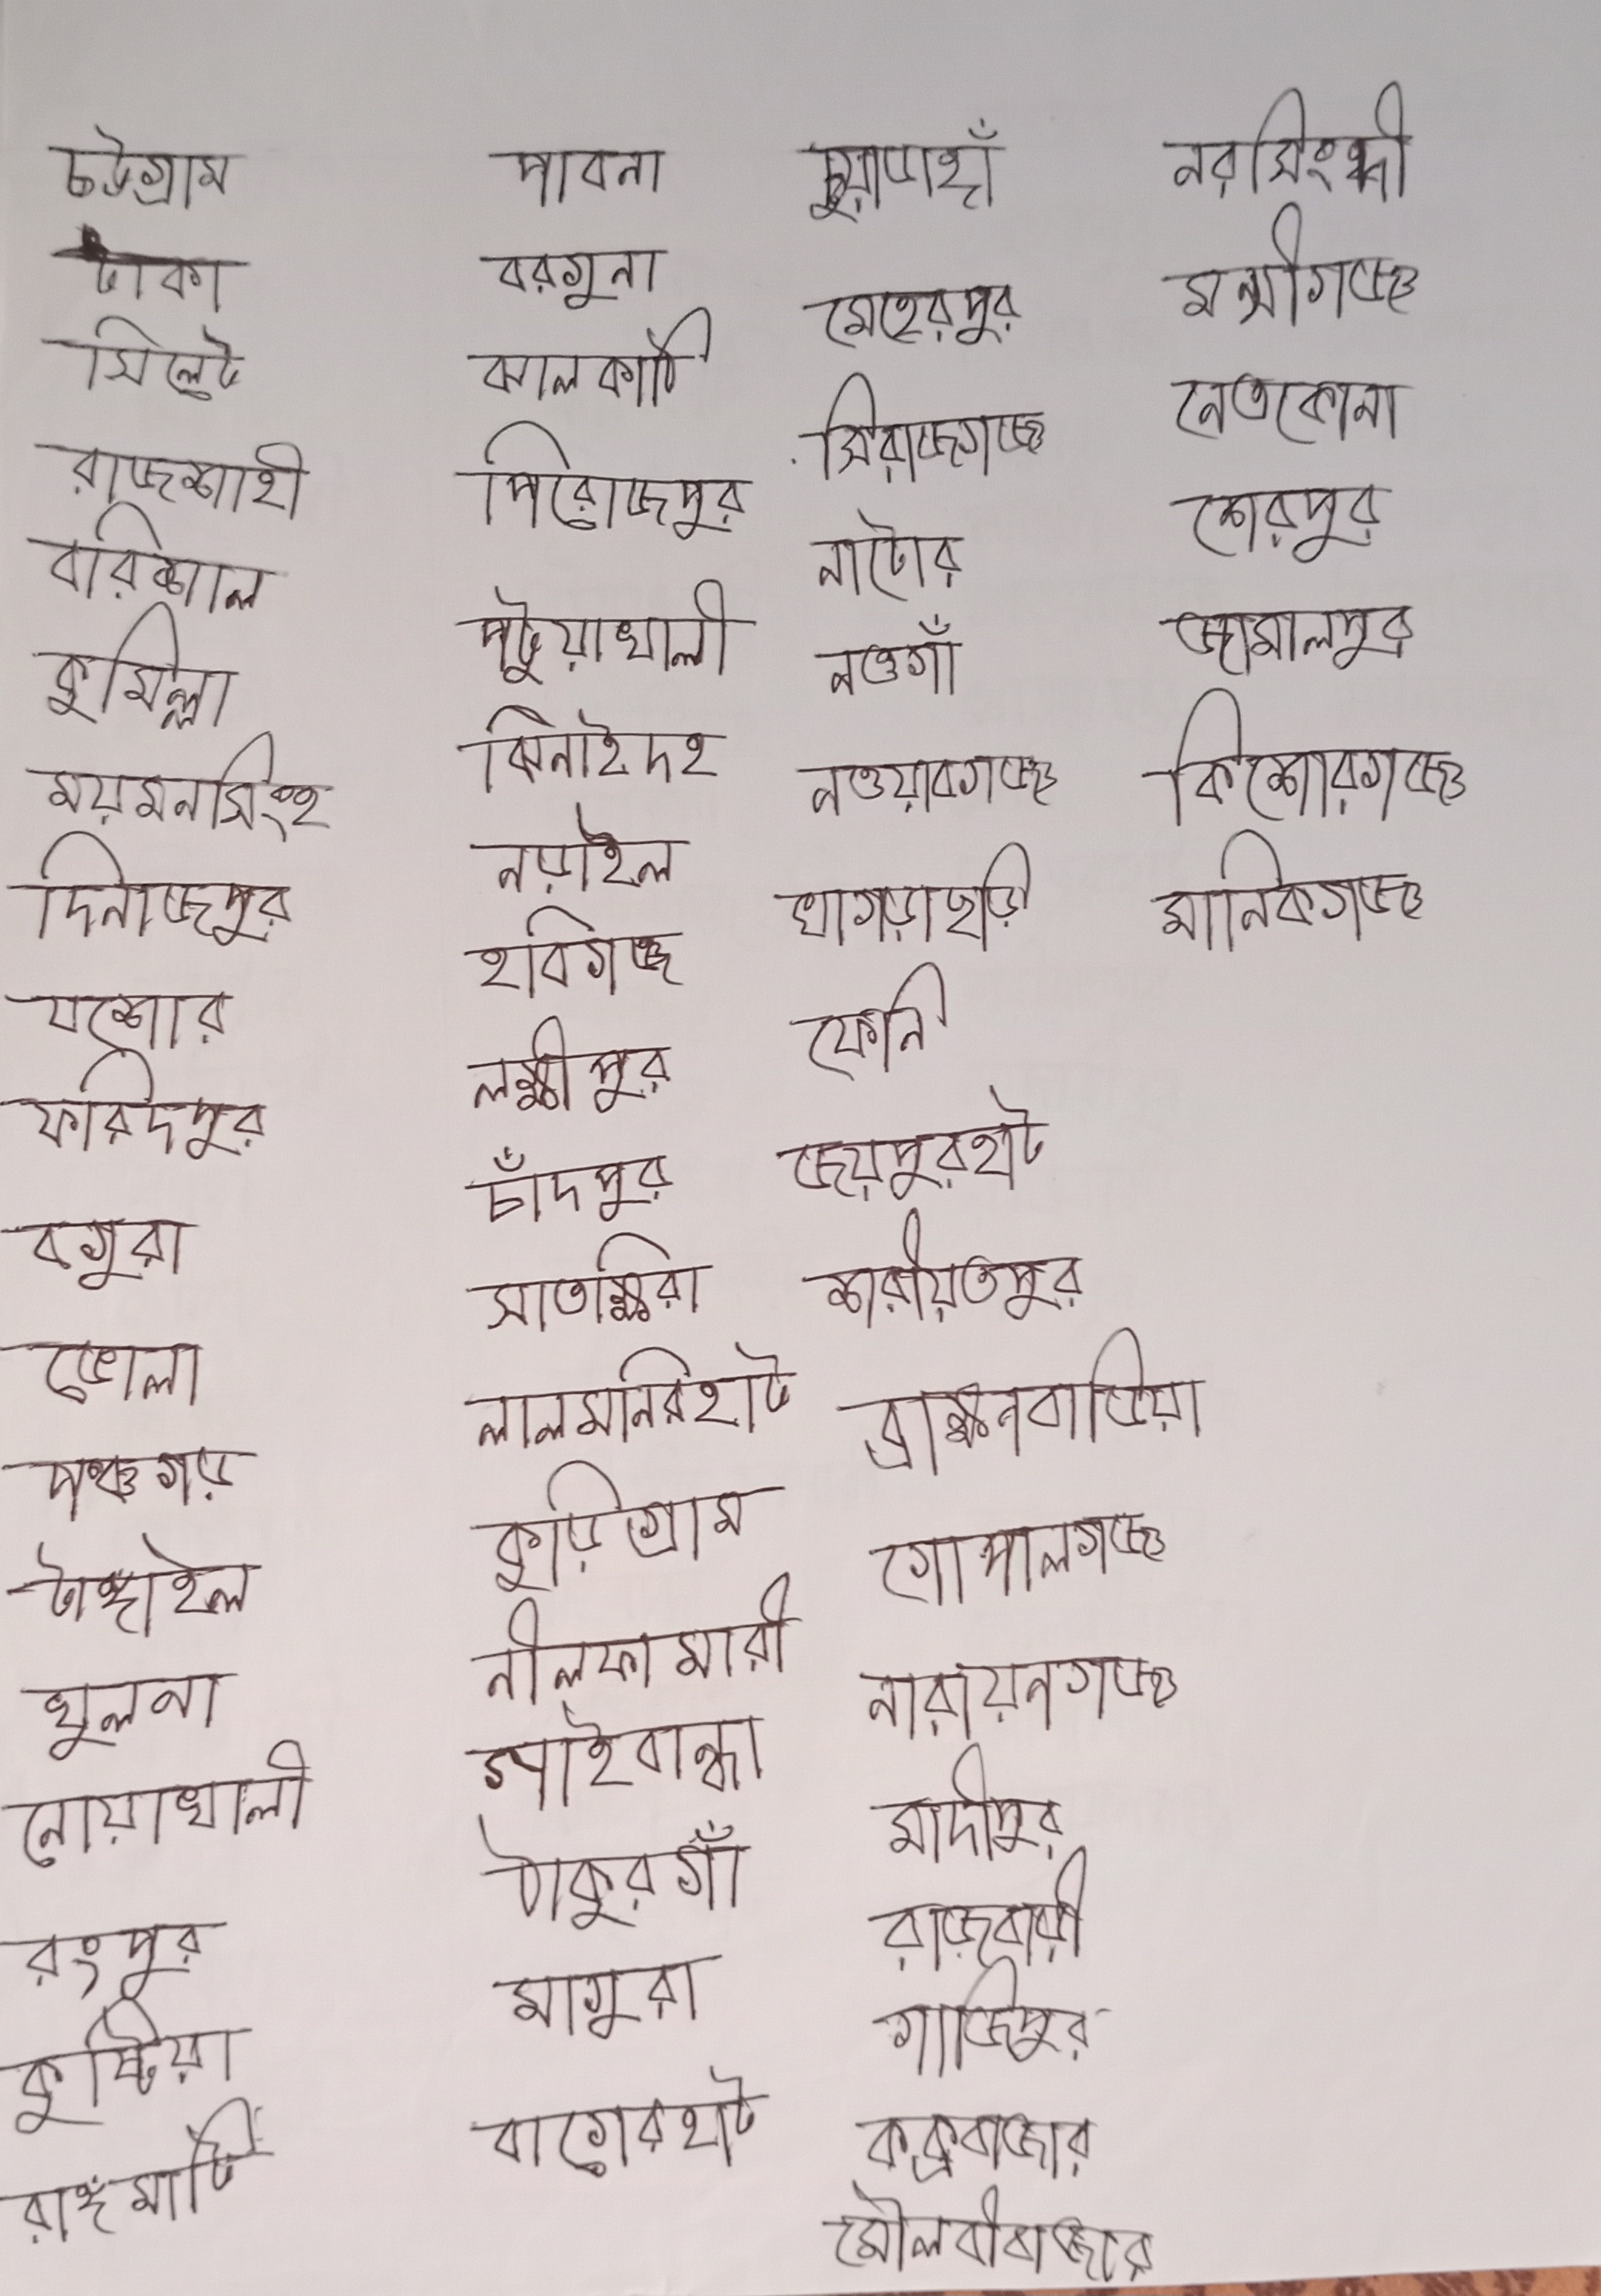 চট্টগ্রাম
ঢাকা
সিলেট
রাজশাহী
বরিশাল
কুমিল্লা
ময়মনসিংহ
দিনাজপুর
যশোর
ফরিদপুর
বগুরা
ভোলা
পঞ্চগড়
টাঙ্গাইল
খুলনা
নোয়াখালী
রংপুর
কুষ্টিয়া
রাঙ্গমাটি
পাবনা
বরগুনা
ঝালকাটি
পিরোজপুর
পটুয়াখালী
ঝিনাইদহ
নড়াইল
হবিগঞ্জ
লক্ষ্মীপুর
চাঁদপুর
সাতক্ষিরা
লালমনিরহাট
কুড়িগ্রাম
নীলফামারী
গাইবান্ধা
ঠাকুরগাঁ
মাগুরা
বাগেরহাট
চুয়াডাঙ্গাঁ
মেহেরপুর
সিরাজগঞ্জ
নাটোর
নওগাঁ
নওয়াবগঞ্জ
খাগড়াছড়ি
ফেনি
জয়পুরহাট
শরীয়তপুর
ব্রাক্ষনবাড়িয়া
গোপালগঞ্জ
নারায়নগঞ্জ
মাদীপুর
রাজবাড়ী
গাজিপুর
কক্রবাজার
মৌলবীবাজার
নরসিংন্দী
মন্সীগঞ্জ
নেতকোনা
শেরপুর
জামালপুর
কিশোরগঞ্জ
মানিকগঞ্জ